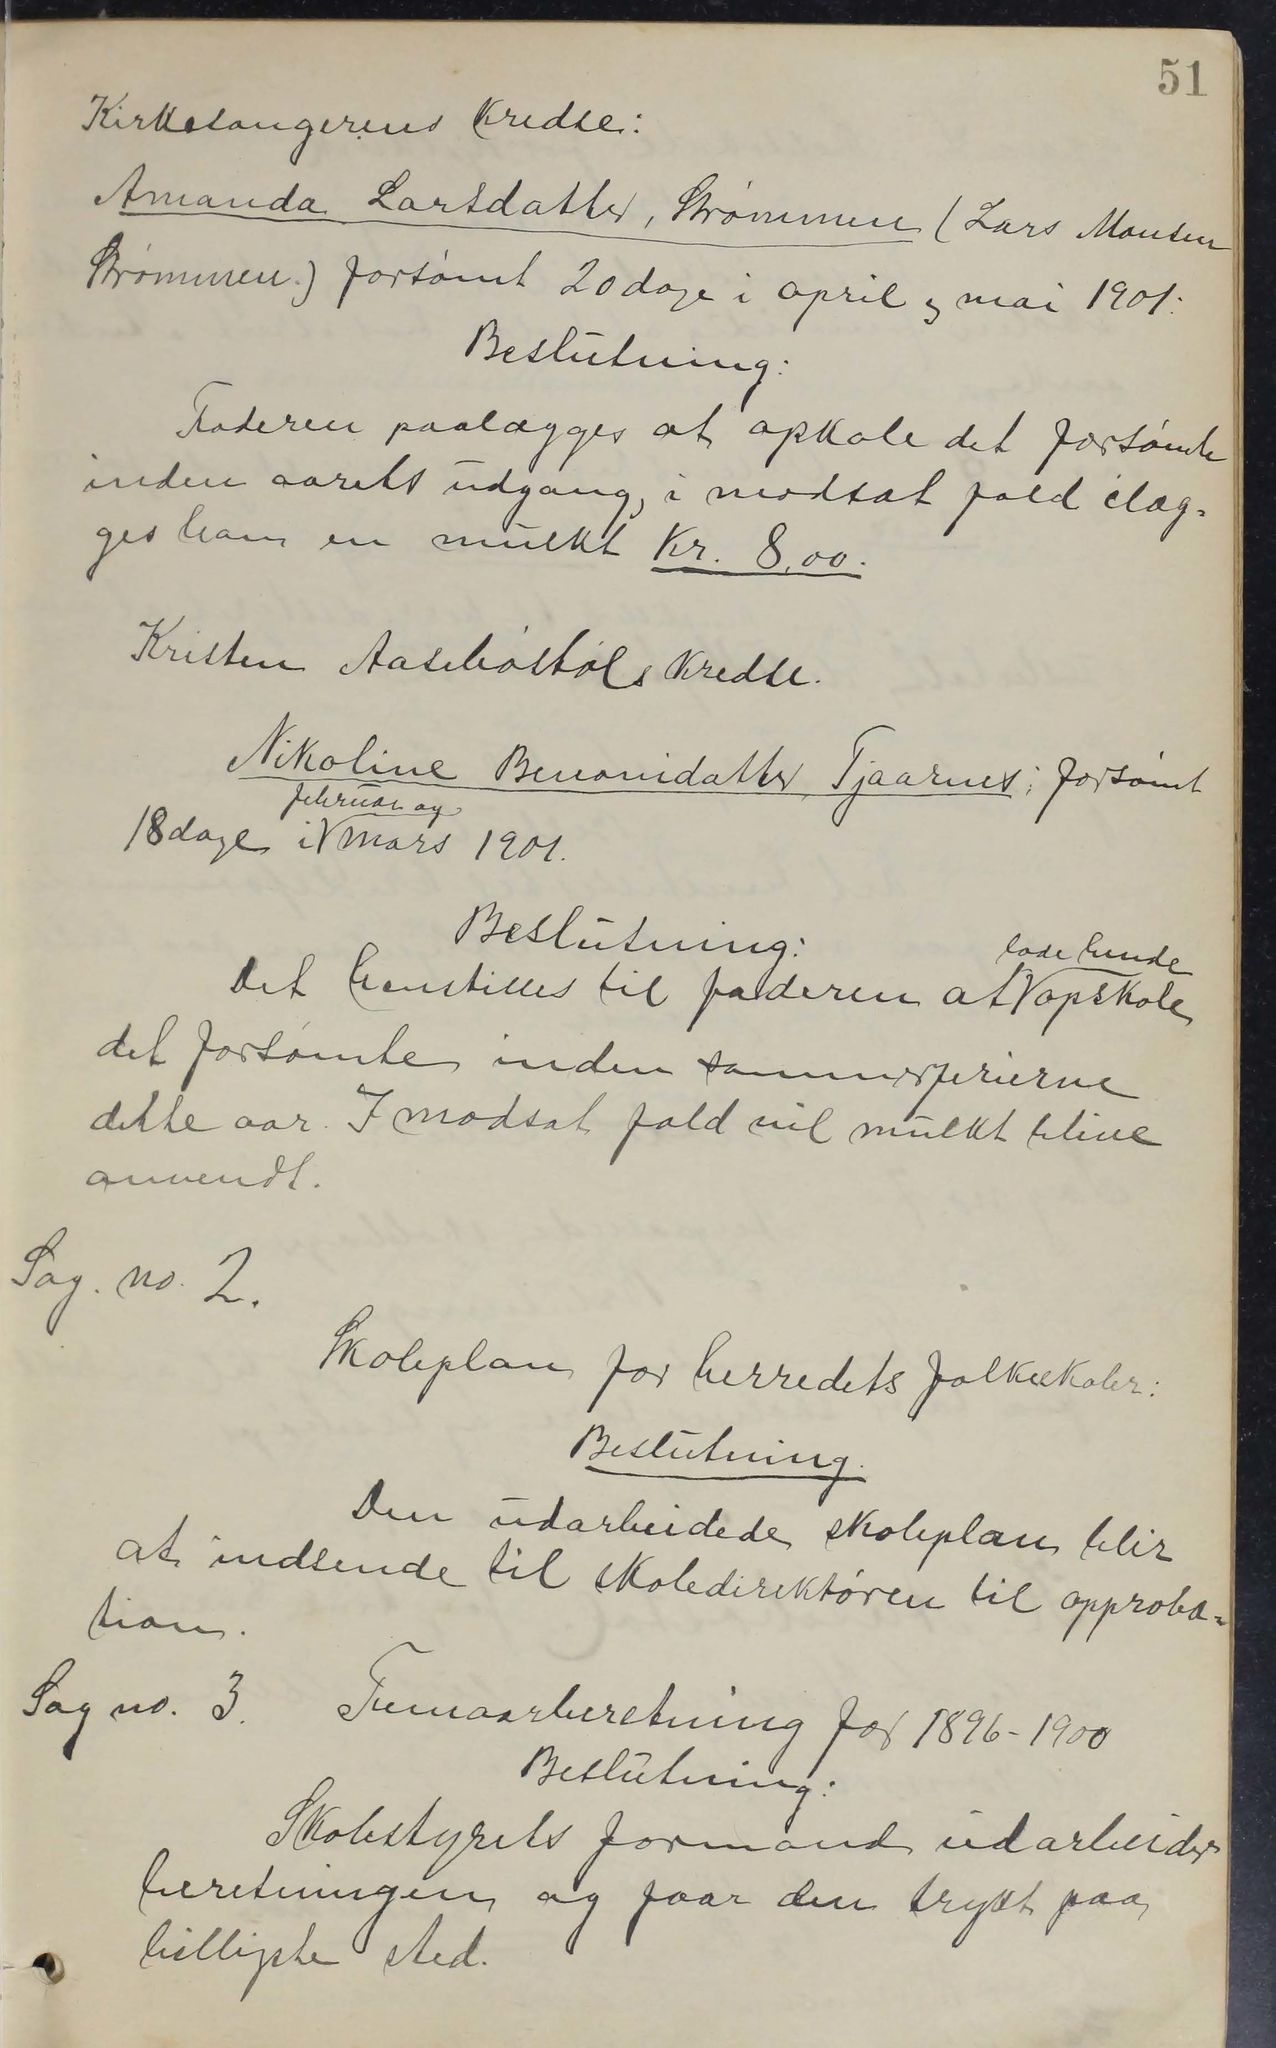 51
Kirkesangerens kredse:
Amanda Larsdatter, Strømmen (Lars Monsen
Strømmen.) forsømt 20 dage i april og mai 1901:
Beslutning:
Faderen paalægges at opskole det forsømte
inden aarets udgang, i modsat fald ilæg-
ges ham en mulkt Kr. 8,00.
Kristen Aasebøstøls kredse.
Nikoline Benonidatter, Tjaarnes; forsømt
februar og
18 dage i mars 1901.
Beslutning:
lade hende
Det henstilles til faderen at opskole
det forsømte inden sommerferierne
dette aar. I modsat fald vil mulkt blive
anvendt.
Sag. no. 2.
Skoleplan for herredets folkeskoler:
Beslutning.
Den udarbeidede skoleplan blir
at indsende til skoledirektøren til approba-
tion.
Sag no. 3. Femaarberetning for 1896-1900
Beslutning:
Skolestyrets formand udarbeider
beretningen og faar den trykt paa
billigste sted.